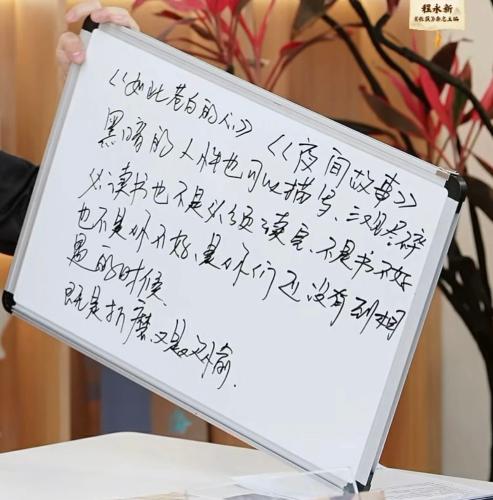 程永新
《收获》杂志主编
《如此苍白的心》 《夜间故事》
黑暗的人性也可以描写、三观尽碎
必读书也不是必须读完、不是书不好
也不是你不好、是你们还没有到相
遇的时候
既是折磨又是欢愉.